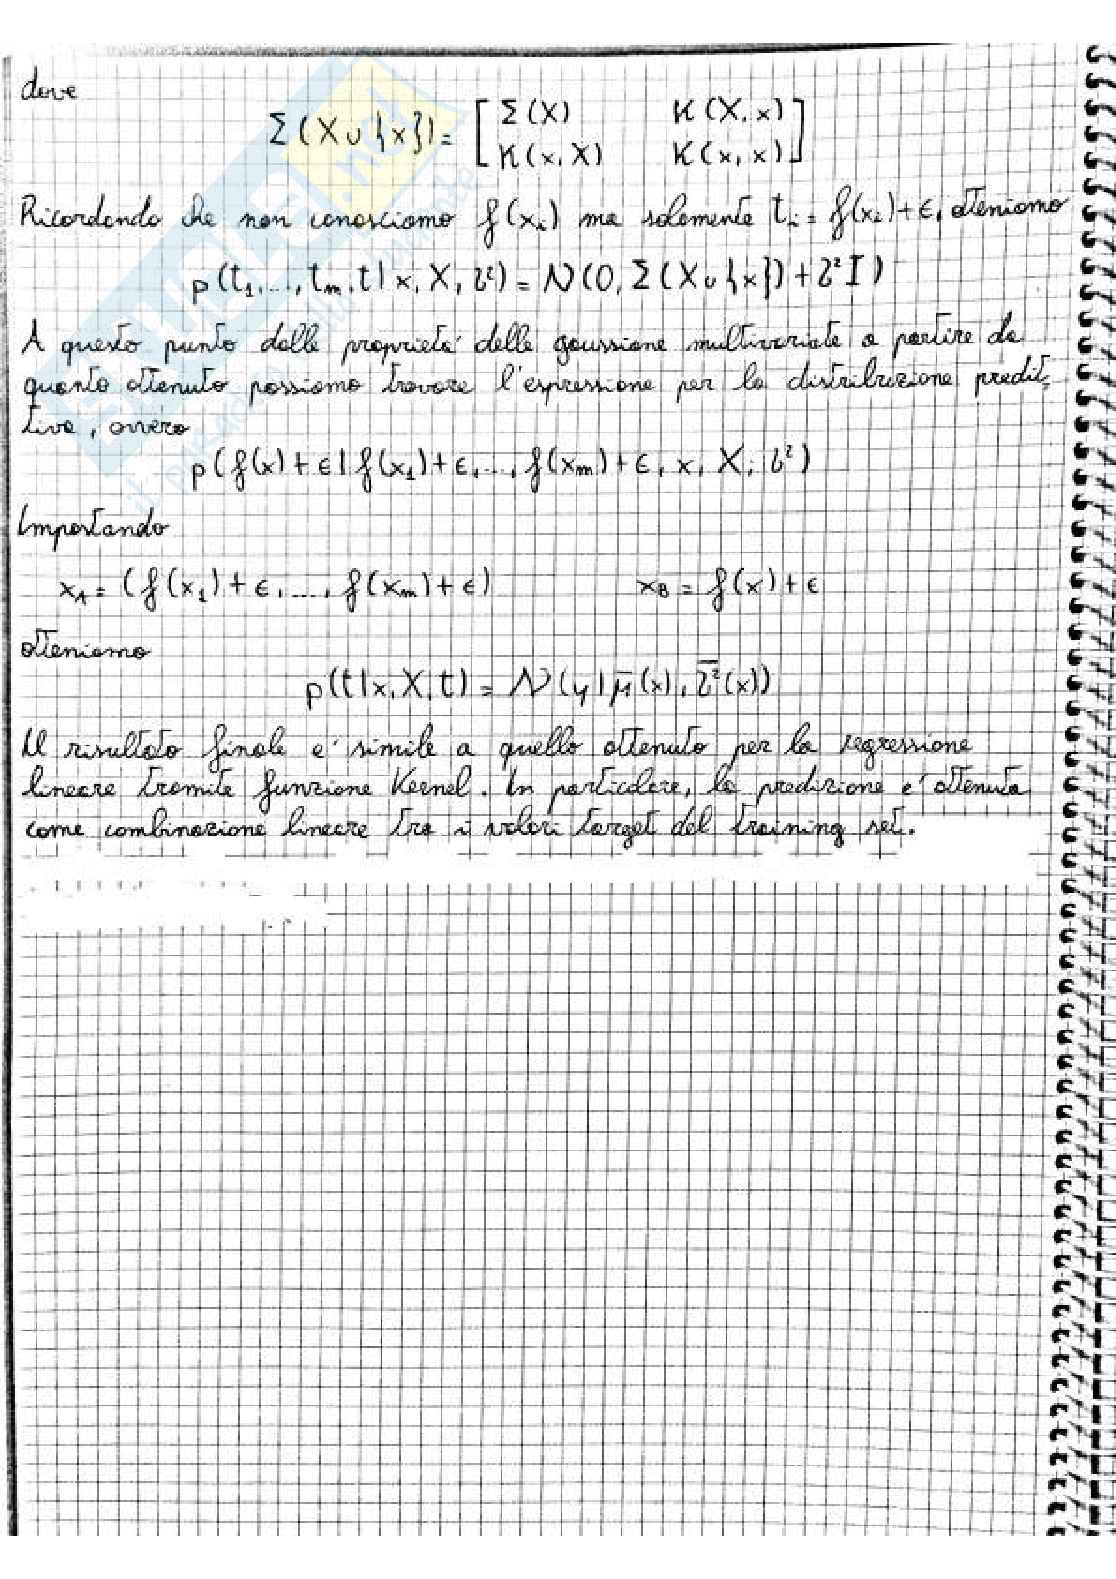 dove
Σ(X∪{x}) = [ Σ(X) K(X,x)
K(x,X) K(x,x) ]
Ricordando che non conosciamo f(xᵢ) ma solamente tᵢ = f(xᵢ)+ϵ, otteniamo
p(t₁,...,tₘ,t|x,X,σ²) = N(0, Σ(X∪{x})+σ²I)
A questo punto dalle proprietà delle gaussiane multivariate a partire da
quanto ottenuto possiamo trovare l'espressione per la distribuzione predit-
tiva, ovvero
p(f(x)+ϵ|f(x₁)+ϵ,...,f(xₘ)+ϵ, x, X, σ²)
Impostando
x_A = (f(x₁)+ϵ,...,f(xₘ)+ϵ) x_B = f(x)+ϵ
otteniamo
p(t|x,X,t) = N(y|μ̄(x), σ̄²(x))
Il risultato finale e' simile a quello ottenuto per la regressione
lineare tramite funzione Kernel. In particolare, la predizione e' ottenuta
come combinazione lineare tra i valori target del training set.